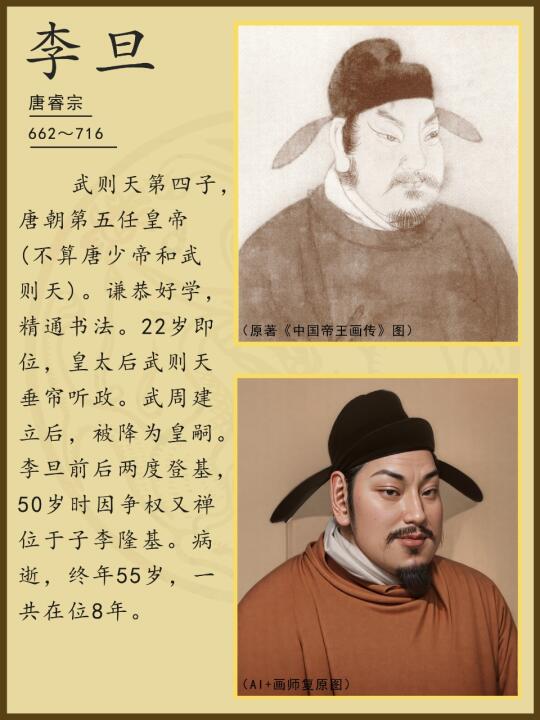 李旦
唐睿宗
662～716
武则天第四子，
唐朝第五任皇帝
(不算唐少帝和武
则天)。谦恭好学，
精通书法。22岁即
位，皇太后武则天
垂帘听政。武周建
立后，被降为皇嗣。
李旦前后两度登基，
50岁时因争权又禅
位于子李隆基。病
逝，终年55岁，一
共在位8年。
（原著《中国帝王画传》图）
（AI+画师复原图）